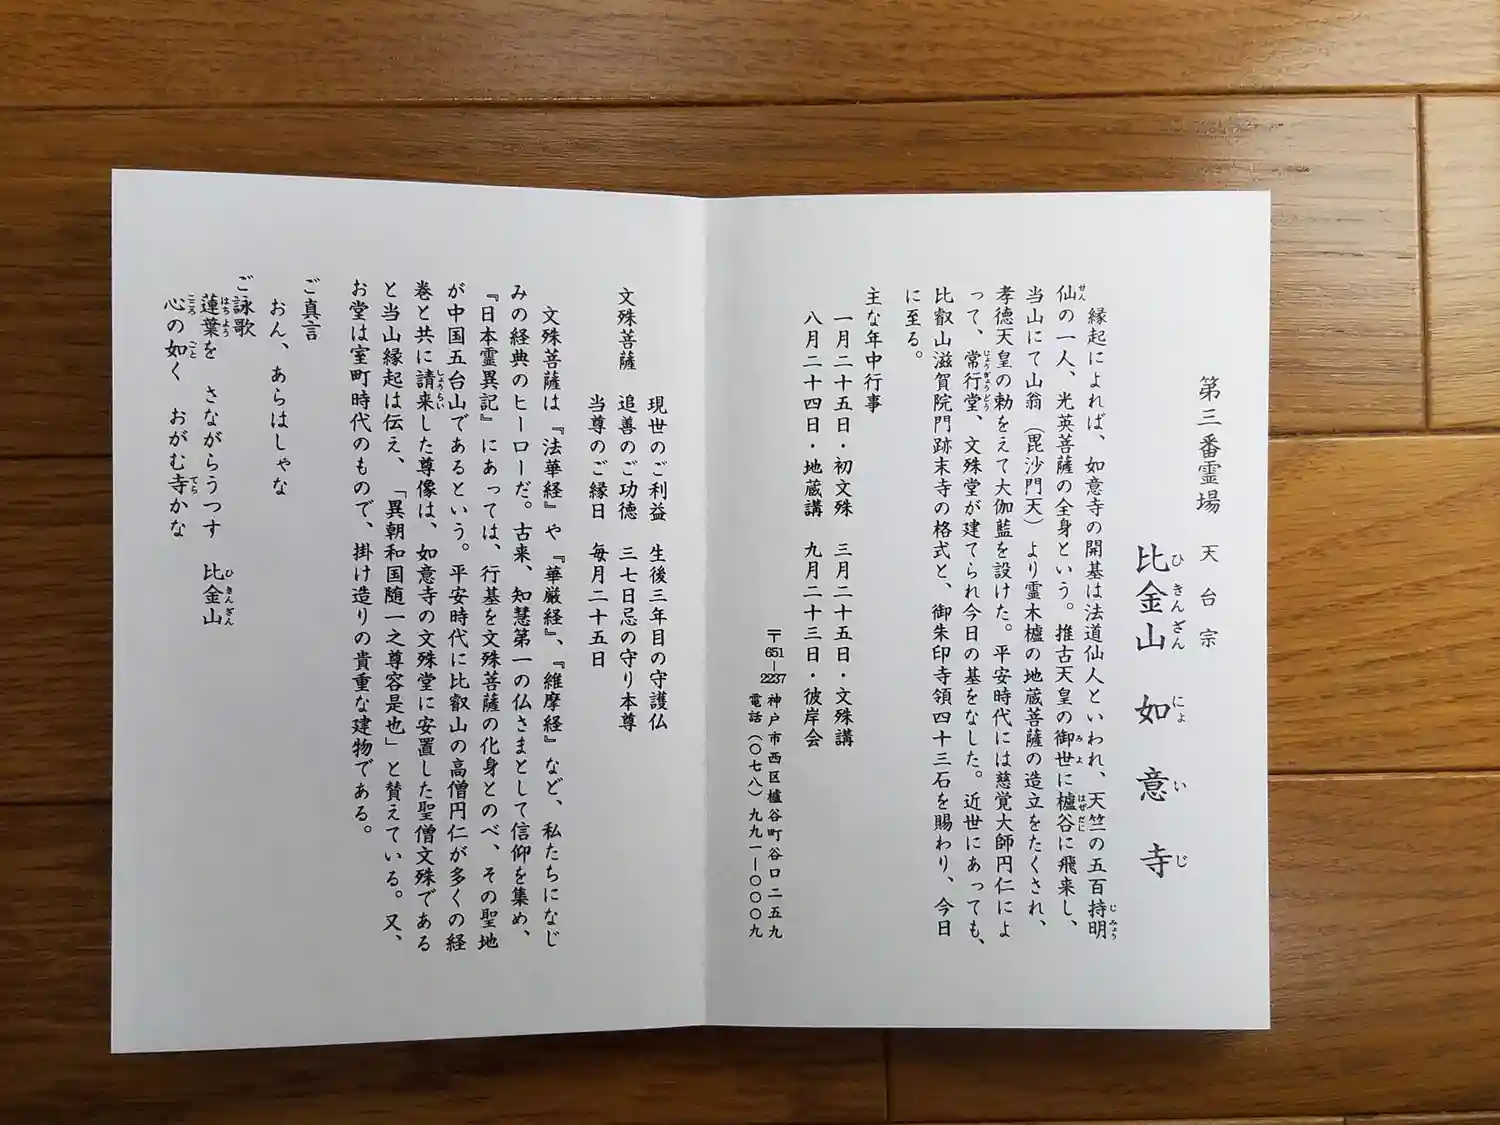 第三番霊場　天台宗
比金山　如意寺
ひきんざん　にょいじ
縁起によれば、如意寺の開基は法道仙人といわれ、天竺の五百持明
じみょう
仙の一人、光英菩薩の全身という。推古天皇の御世に櫨谷に飛来し、
せん　みよ　はぜだに
当山にて山翁（毘沙門天）より霊木櫨の地蔵菩薩の造立をたくされ、
孝徳天皇の勅をえて大伽藍を設けた。平安時代には慈覚大師円仁によ
って、常行堂、文殊堂が建てられ今日の基をなした。近世にあっても、
じょうぎょうどう
比叡山滋賀院門跡末寺の格式と、御朱印寺領四十三石を賜わり、今日
に至る。
主な年中行事
一月二十五日・初文殊　三月二十五日・文殊講
八月二十四日・地蔵講　九月二十三日・彼岸会
〒651-2237　神戸市西区櫨谷町谷口二五九
電話（〇七八）九九一ー〇〇〇九
文殊菩薩　現世のご利益　生後三年目の守護仏
追善のご功徳　三七日忌の守り本尊
当尊のご縁日　毎月二十五日
文殊菩薩は『法華経』や『華厳経』、『維摩経』など、私たちになじ
みの経典のヒーローだ。古来、知慧第一の仏さまとして信仰を集め、
『日本霊異記』にあっては、行基を文殊菩薩の化身とのべ、その聖地
が中国五台山であるという。平安時代に比叡山の高僧円仁が多くの経
巻と共に請来した尊像は、如意寺の文殊堂に安置した聖僧文殊である
しょうらい
と当山縁起は伝え、「異朝和国随一之尊容是也」と賛えている。又、
お堂は室町時代のもので、掛け造りの貴重な建物である。
ご真言
おん、あらはしゃな
ご詠歌
蓮葉を　さながらうつす　比金山
はちよう　ひきんざん
心の如く　おがむ寺かな
こころ　ごと　てら